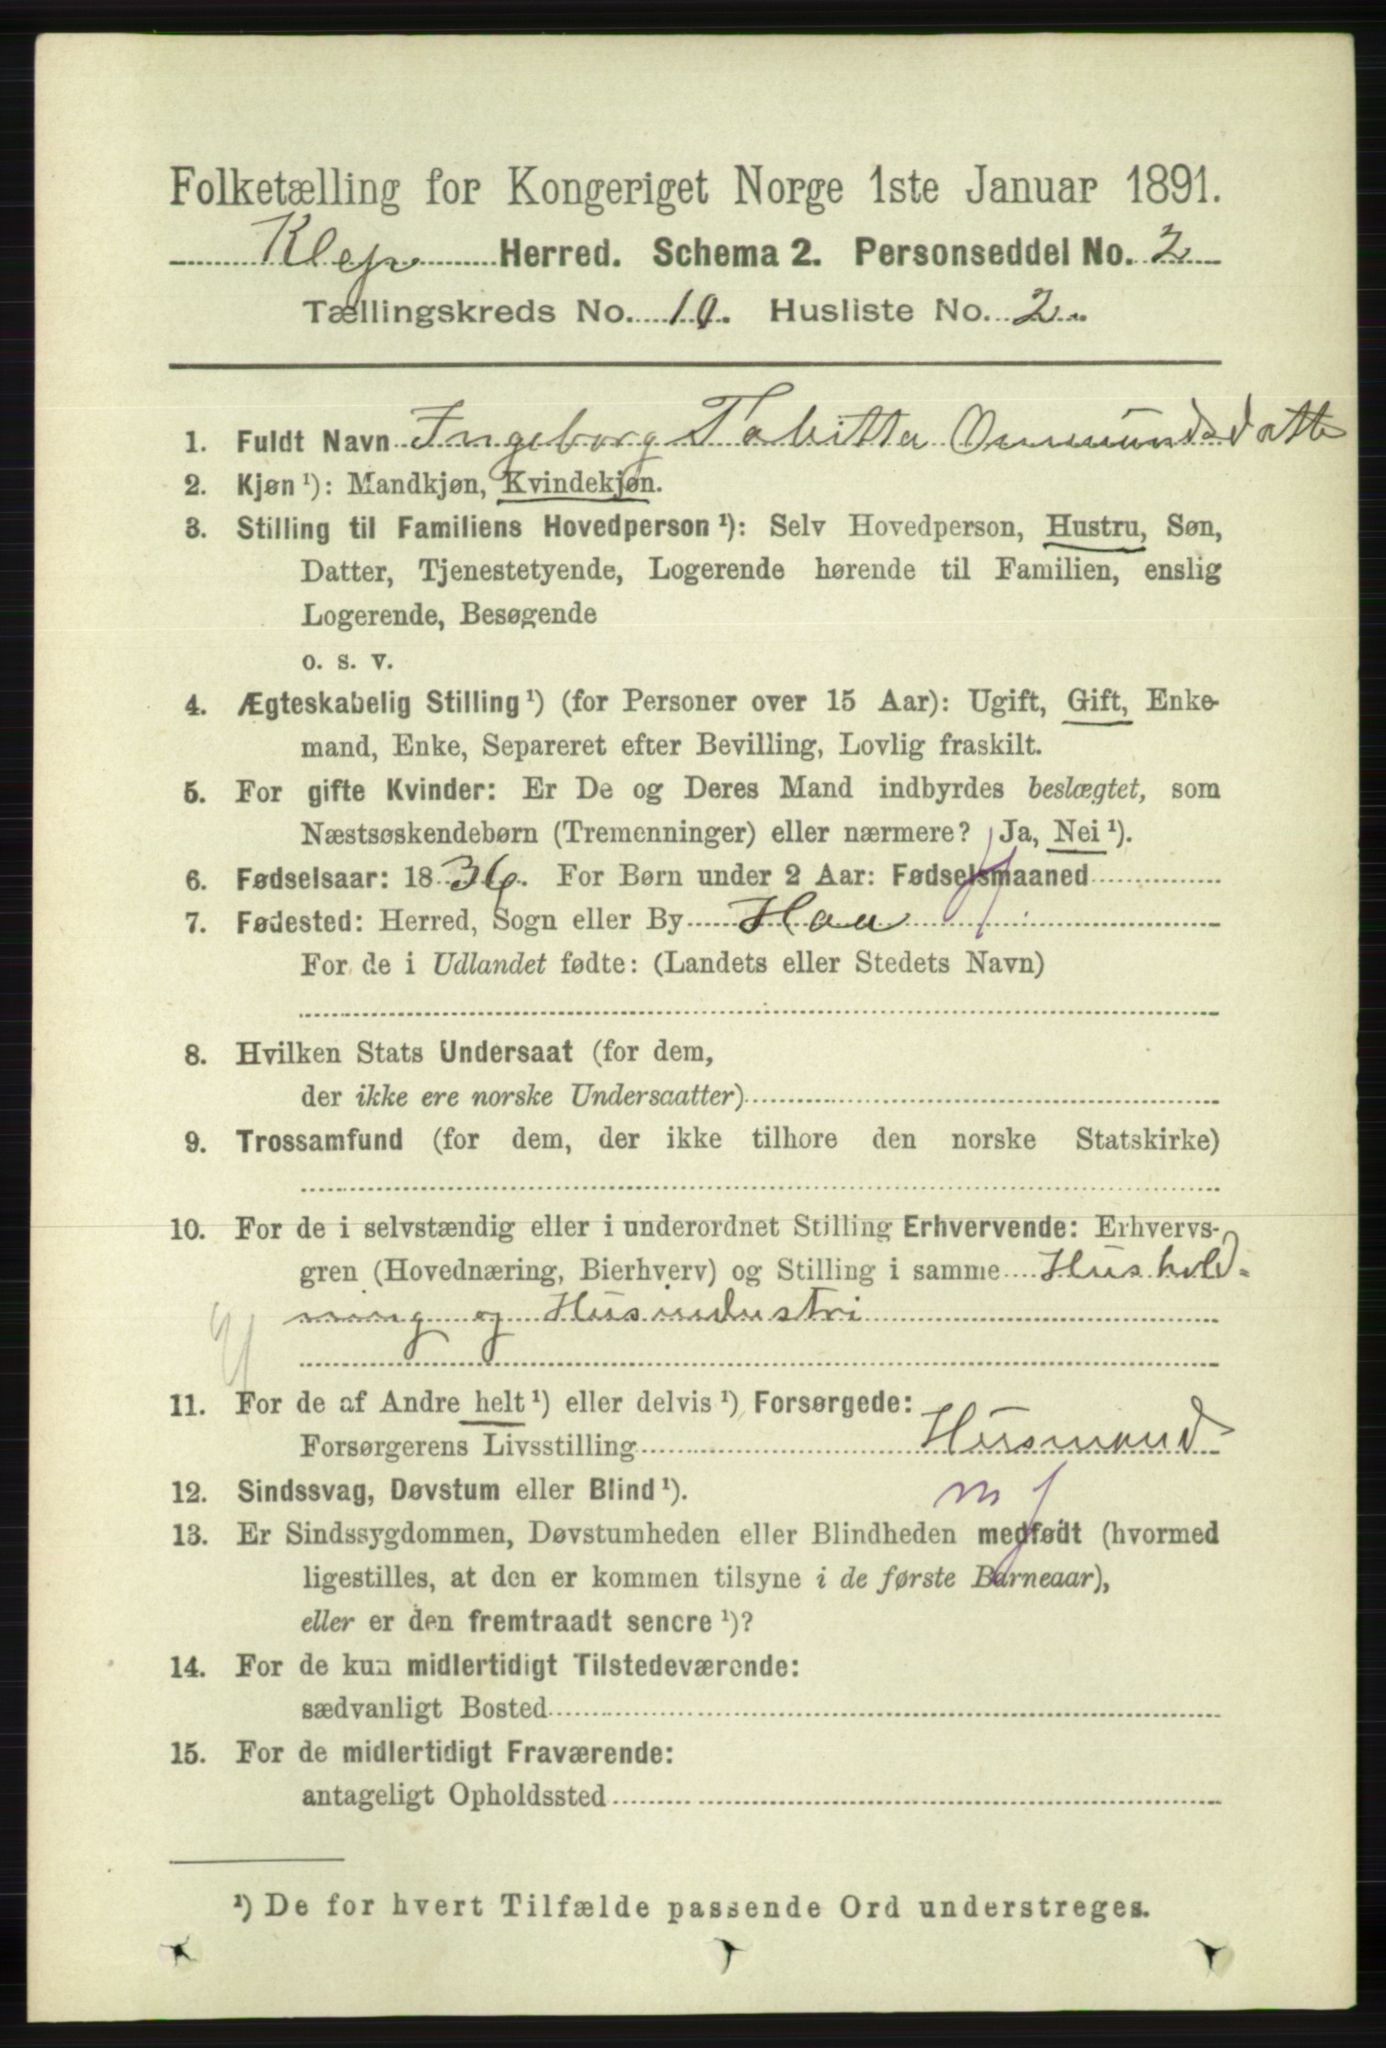 Folketælling for Kongeriget Norge 1ste Januar 1891.
Klep Herred. Schema 2. Personseddel No. 2
Tællingskreds No. 10. Husliste No. 2.
1. Fuldt Navn Ingeborg Tabitta Ommundsdatte
2. Kjøn ¹): Mandkjøn, Kvindekjøn.
3. Stilling til Familiens Hovedperson ¹): Selv Hovedperson, Hustru, Søn,
Datter, Tjenestetyende, Logerende hørende til Familien, enslig
Logerende, Besøgende
o. s. v.
4. Ægteskabelig Stilling ¹) (for Personer over 15 Aar): Ugift, Gift, Enke-
mand, Enke, Separeret efter Bevilling, Lovlig fraskilt.
5. For gifte Kvinder: Er De og Deres Mand indbyrdes beslægtet, som
Næstsøskendebørn (Tremenninger) eller nærmere? Ja, Nei ¹).
6. Fødselsaar: 1836. For Børn under 2 Aar: Fødselsmaaned
7. Fødested: Herred, Sogn eller By Haa
For de i Udlandet fødte: (Landets eller Stedets Navn)
8. Hvilken Stats Undersaat (for dem,
der ikke ere norske Undersaatter)
9. Trossamfund (for dem, der ikke tilhøre den norske Statskirke)
10. For de i selvstændig eller i underordnet Stilling Erhvervende: Erhvervs-
gren (Hovednæring, Bierhverv) og Stilling i samme Hushold-
ning og Husindustri
11. For de af Andre helt ¹) eller delvis ¹) Forsørgede:
Forsørgerens Livsstilling Husmand
12. Sindssvag, Døvstum eller Blind ¹).
m
13. Er Sindssygdommen, Døvstumheden eller Blindheden medfødt (hvormed
ligestilles, at den er kommen tilsyne i de første Barneaar),
eller er den fremtraadt senere ¹)?
14. For de kun midlertidigt Tilstedeværende:
sædvanligt Bosted
15. For de midlertidigt Fraværende:
antageligt Opholdssted
¹) De for hvert Tilfælde passende Ord understreges.